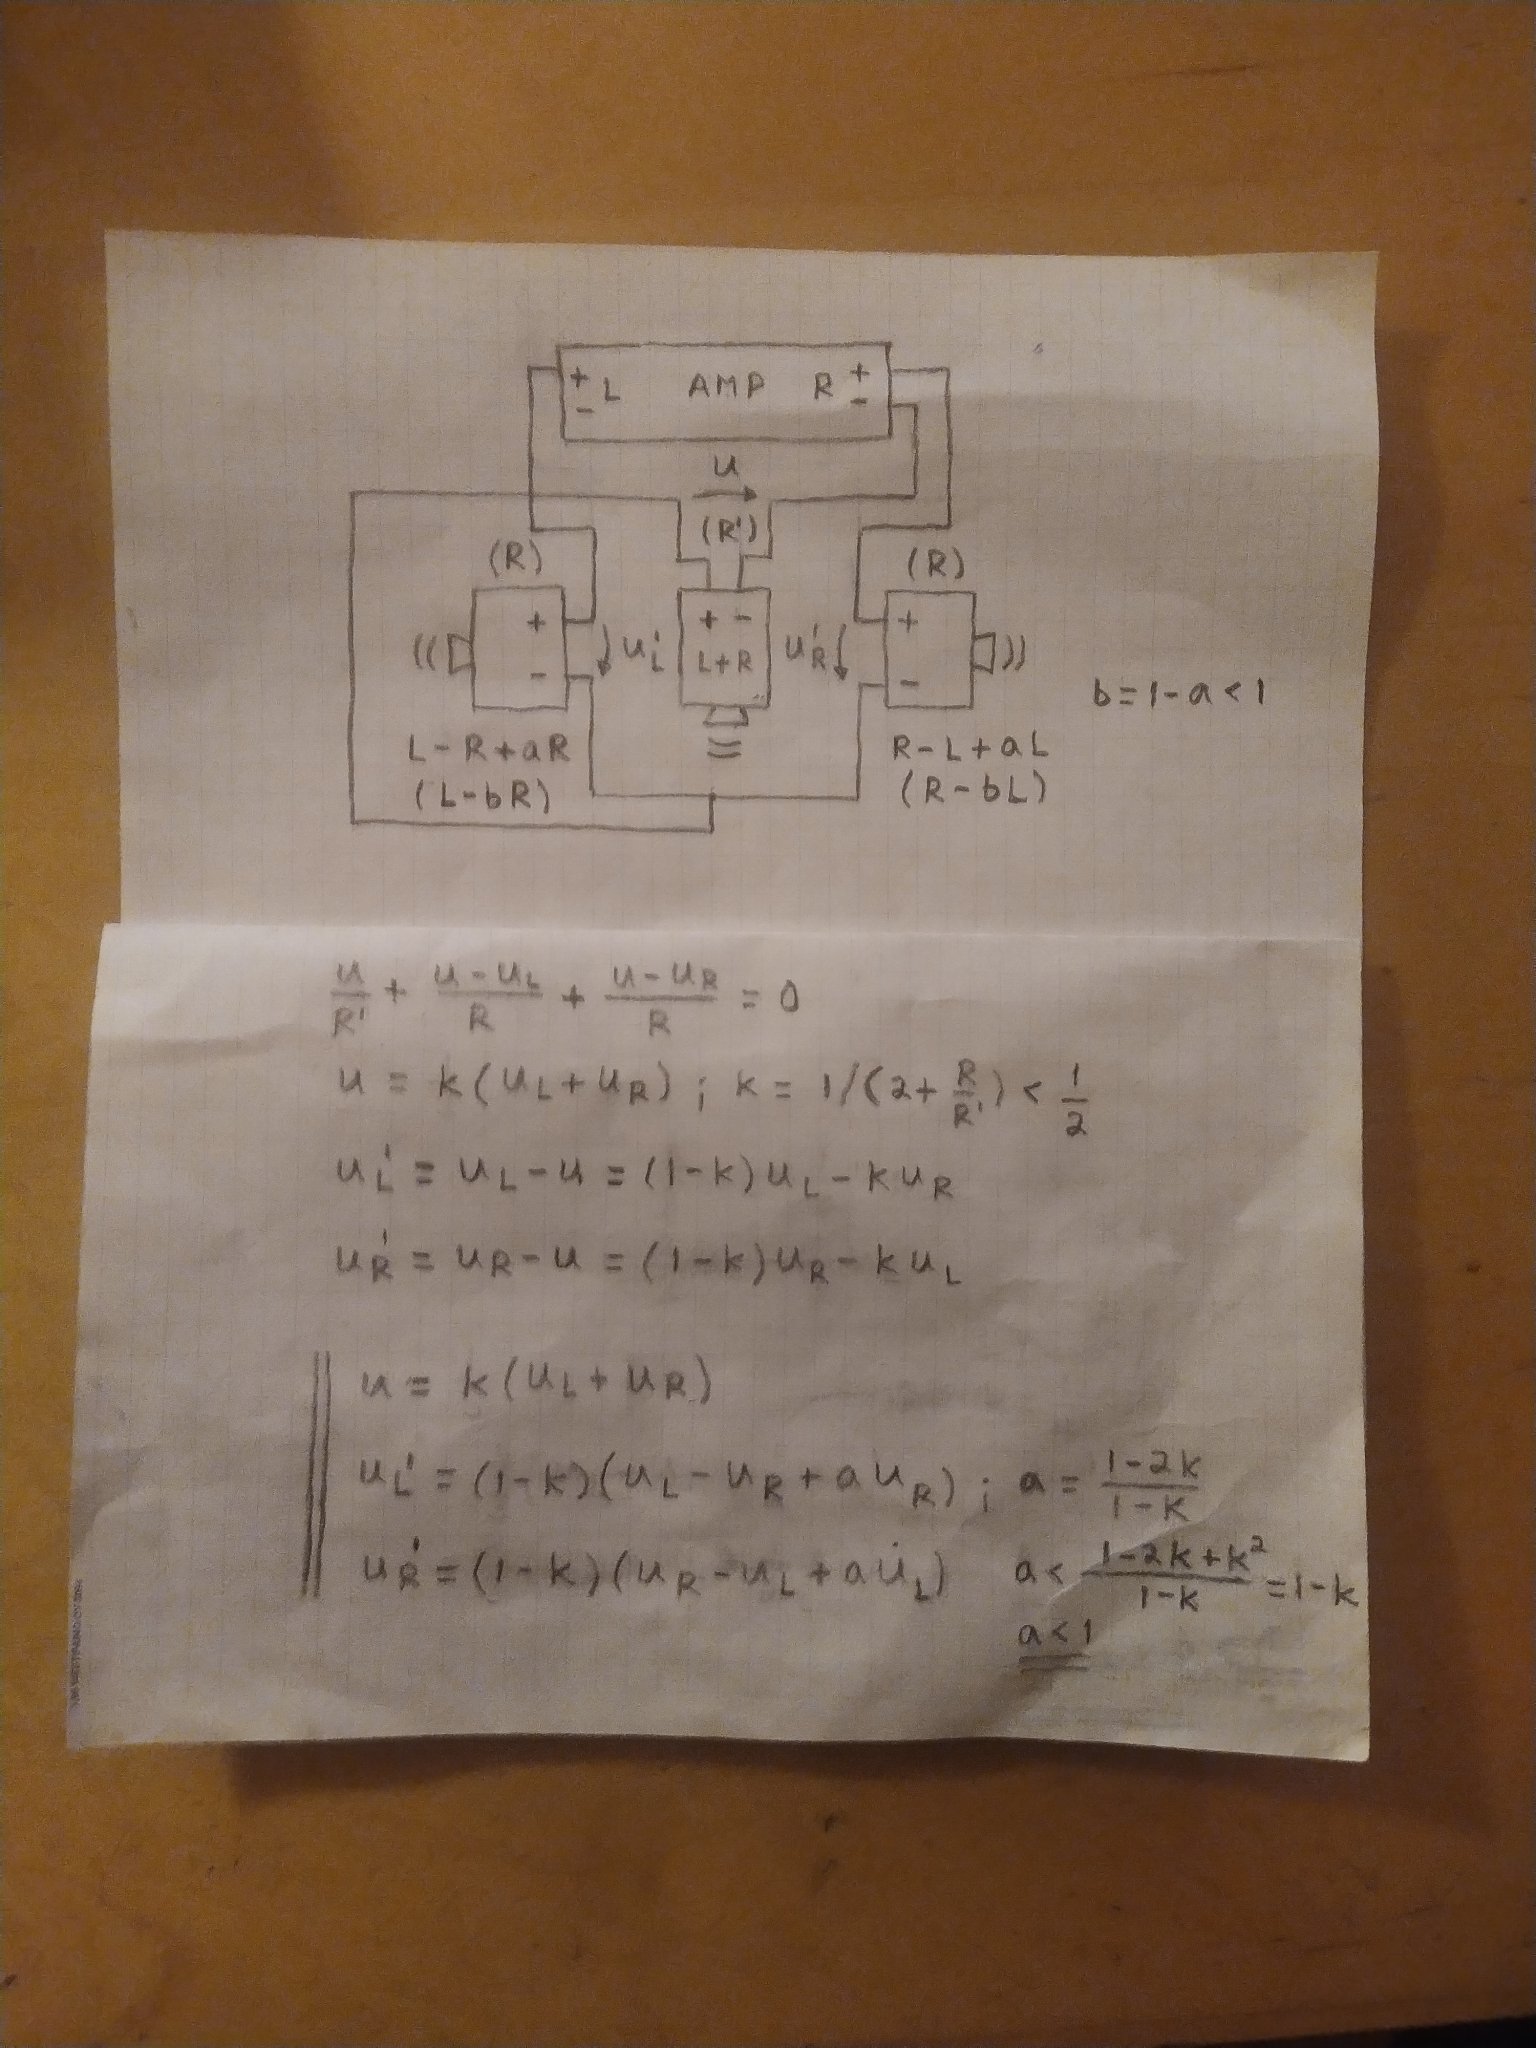 + L AMP R +
- -
u
(R')
(R) (R)
+ + - +
u'L L+R u'R
- -
b=1-a<1
L-R+aR R-L+aL
(L-bR) (R-bL)
u/R' + (u-uL)/R + (u-uR)/R = 0
u = k(uL+uR) ; k = 1/(2+R/R') < 1/2
u'L = uL-u = (1-k)uL-kuR
u'R = uR-u = (1-k)uR-kuL
u = k(uL+uR)
u'L = (1-k)(uL-uR+auR) ; a = (1-2k)/(1-k)
u'R = (1-k)(uR-uL+auL) a < (1-2k+k²)/(1-k) = 1-k
a<1